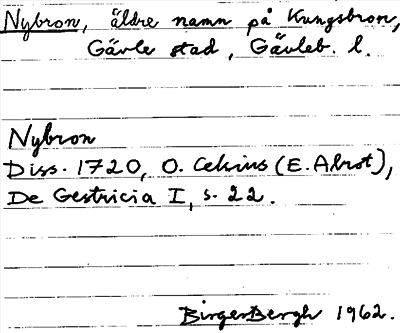 Nybron, äldre namn på Kungsbron,
Gävle stad, Gävleb. l.
Nybron
Diss. 1720, O. Celsius (E. Alrot),
De Gestricia I, s. 22.
Birger Bergh 1962.